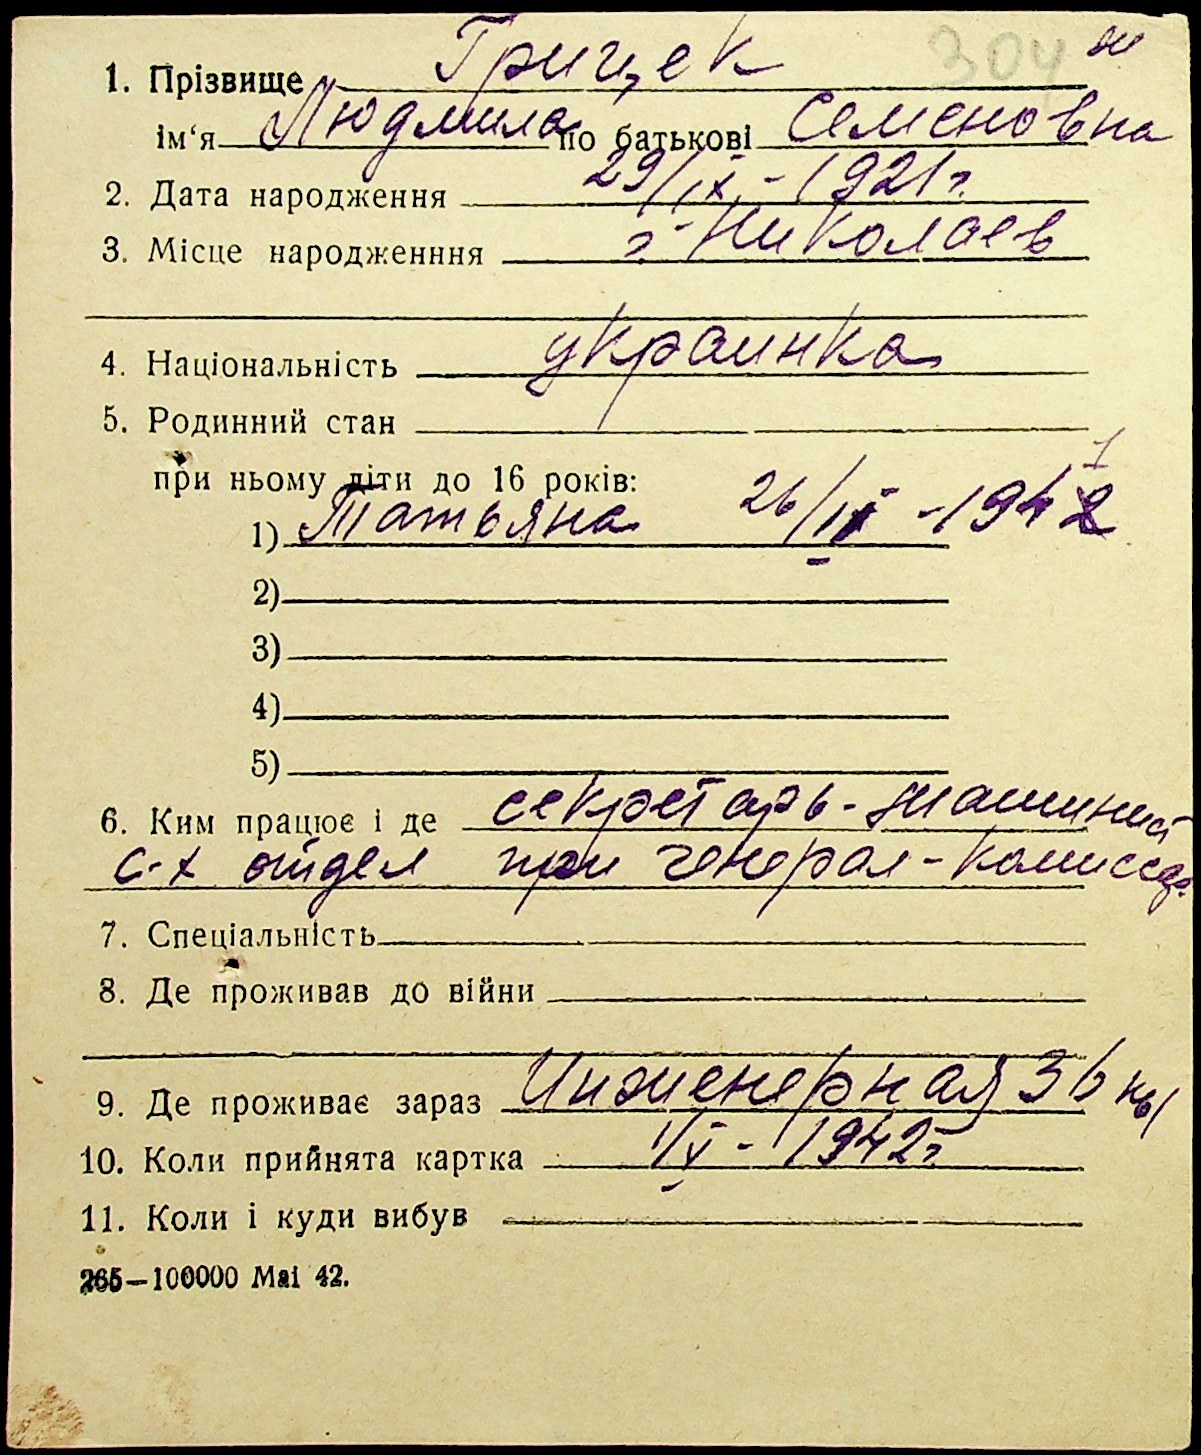 304 ж
1. Прізвище Грицек
ім‘я Людмила по батькові Семеновна
2. Дата народження 29/IX - 1921 г.
3. Місце народженння г. Николаев
4. Національність украинка
5. Родинний стан
при ньому діти до 16 років:
1) Татьяна 26/IX - 1941
2)
3)
4)
5)
6. Ким працює і де секретарь-машинист
с-х отдел при генерал-комиссар.
7. Спеціальність
8. Де проживав до війни
9. Де проживає зараз Инженерная 36 кв 1
10. Коли прийнята картка 1/V - 1942 г.
11. Коли і куди вибув
265—100000 Маі 42.